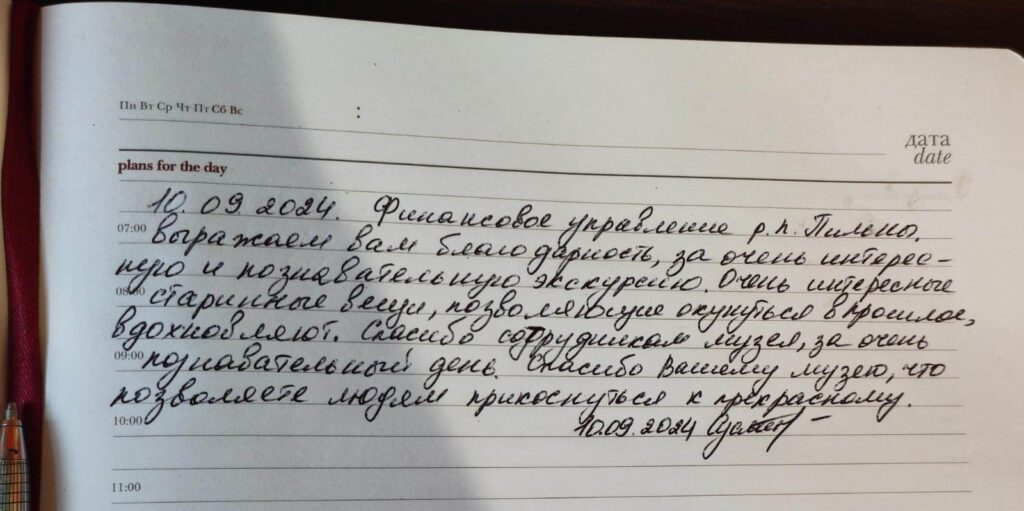 Пн Вт Ср Чт Пт Сб Вс
:
дата
date
plans for the day
10.09.2024. Финансовое управление р.п. Пильны,
07:00
выражаем вам благодарность, за очень интерес-
ную и познавательную экскурсию. Очень интересные
08:00
старинные вещи, позволяющие окунуться в прошлое,
вдохновляют. Спасибо сотрудникам музея, за очень
09:00
познавательный день. Спасибо Вашему музею, что
позволяете людям прикоснуться к прекрасному.
10:00
10.09.2024
11:00